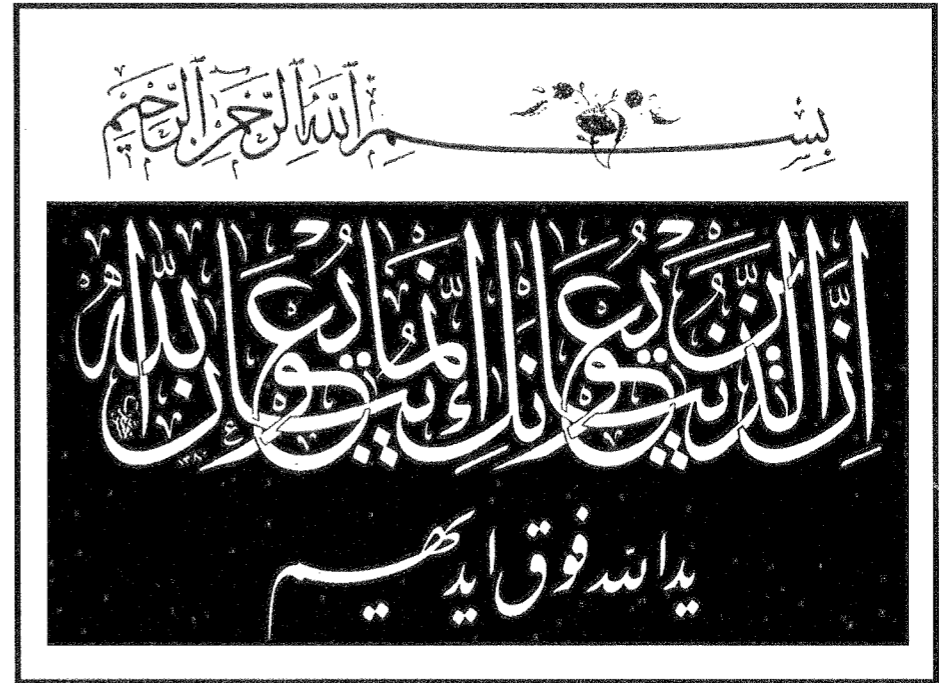 بِسْمِ اللهِ الرَّحْمٰنِ الرَّحِيْمِ
اِنَّ الَّذِيْنَ يُبَايِعُوْنَكَ اِنَّمَا يُبَايِعُوْنَ اللهَ
يد الله فوق ايديهم